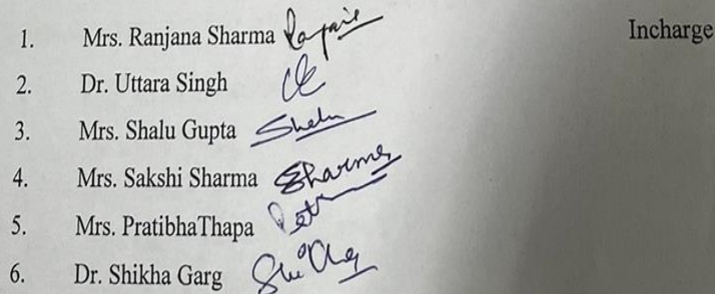 1. Mrs. Ranjana Sharma Incharge
2. Dr. Uttara Singh
3. Mrs. Shalu Gupta Shalu
4. Mrs. Sakshi Sharma Sharma
5. Mrs. PratibhaThapa
6. Dr. Shikha Garg